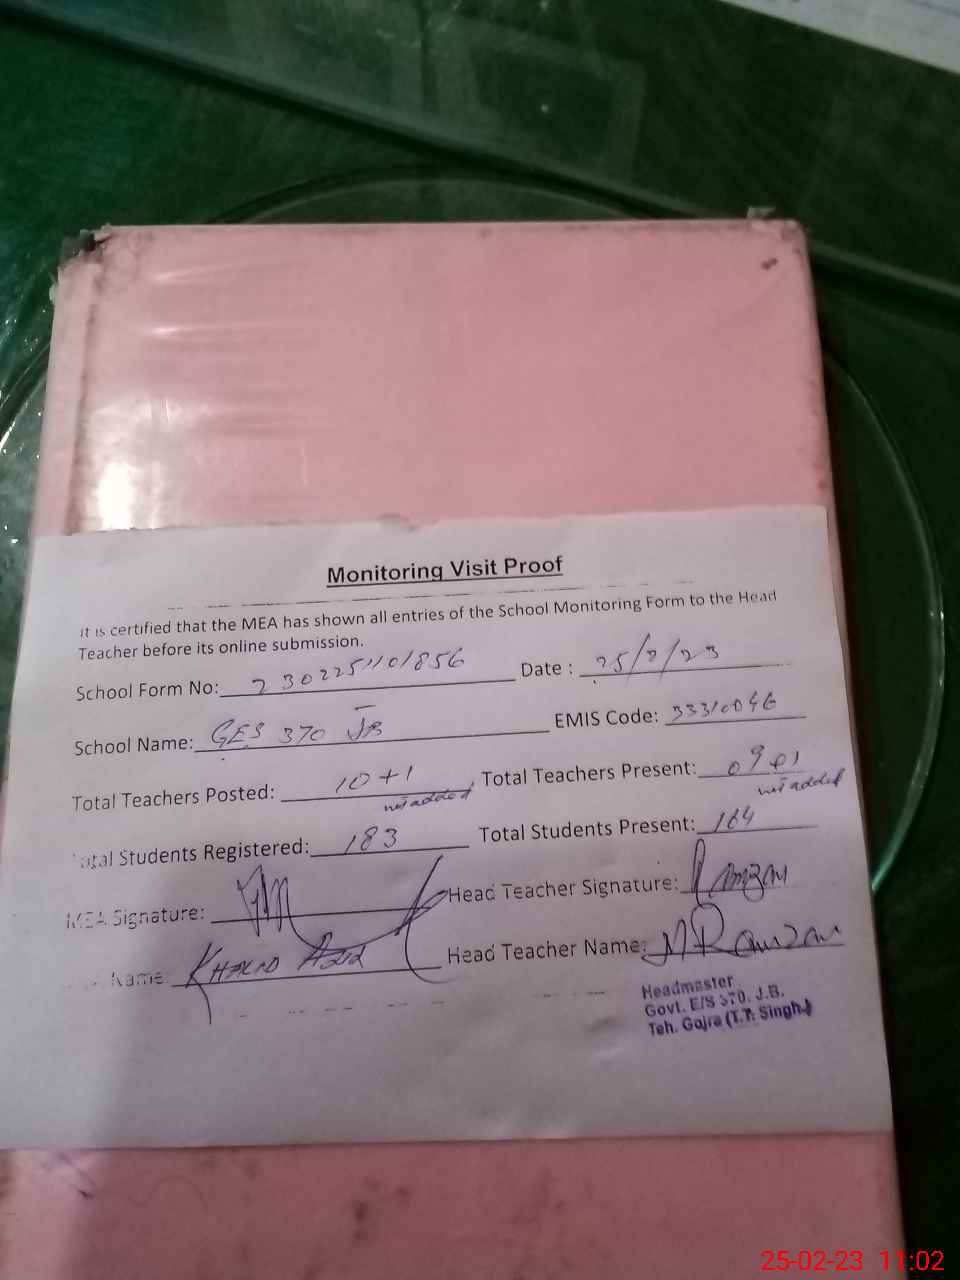 Monitoring Visit Proof
It is certified that the MEA has shown all entries of the School Monitoring Form to the Head
Teacher before its online submission.
School Form No: 2302251101856 Date : 25/2/23
School Name: GES 370 JB EMIS Code: 33310046
Total Teachers Posted: 10+1 Total Teachers Present: 09
not added not added
Total Students Registered: 183 Total Students Present: 164
MEA Signature: Head Teacher Signature: Ramzan
Name: Khalid Aziz Head Teacher Name: M Ramzan
Headmaster
Govt. E/S 370. J.B.
Teh. Gojra (T.T. Singh.)
25-02-23 11:02